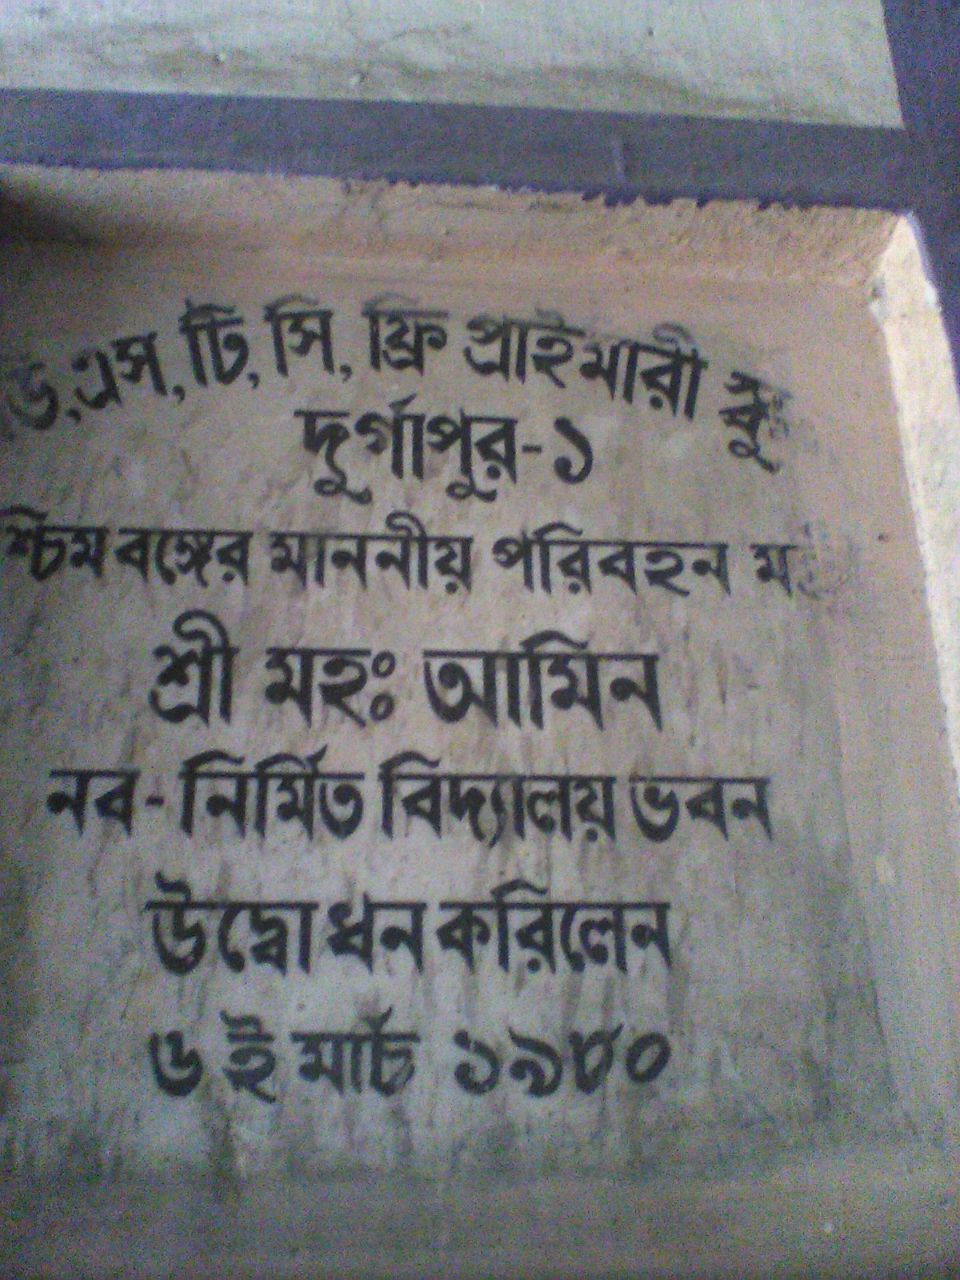 ড, এস, টি, সি, ফ্রি প্রাইমারী
দুর্গাপুর-১
শ্চিম বঙ্গের মাননীয় পরিবহন
শ্রী মহঃ আমিন
নব-নির্মিত বিদ্যালয় ভবন
উদ্বোধন করিলেন
৬ই মার্চ ১৯৮০